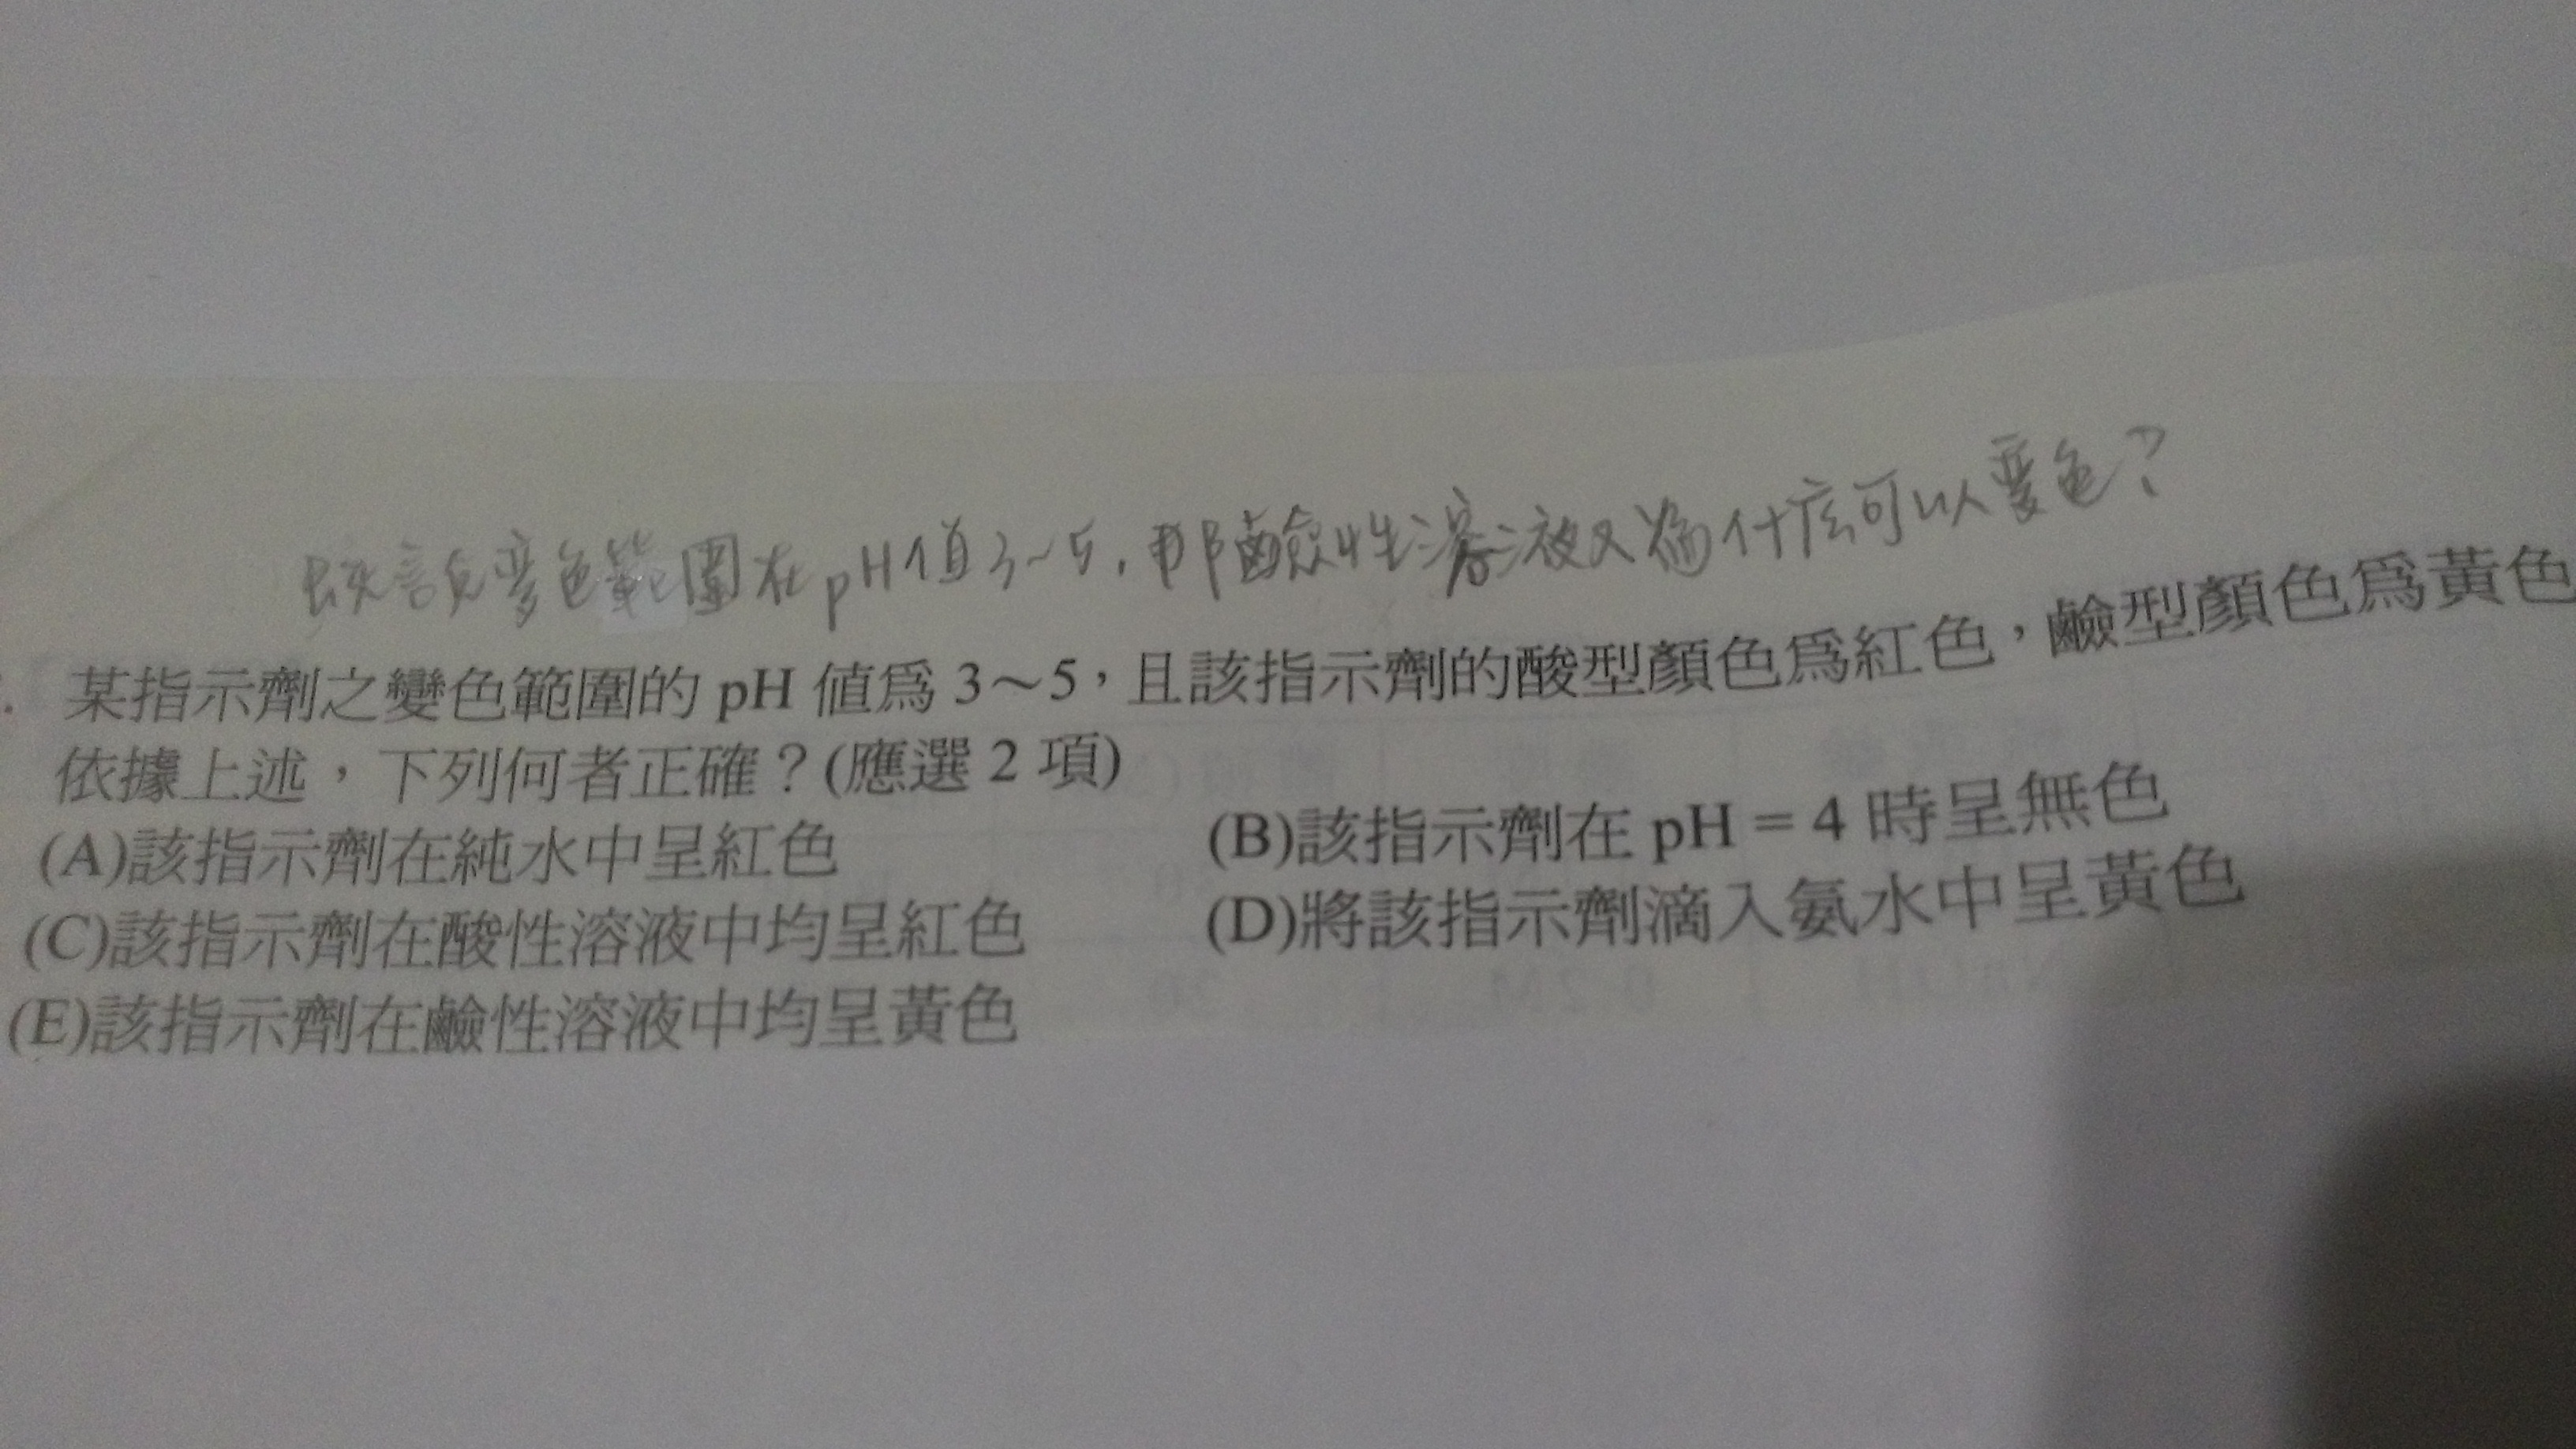 既說變色範圍在pH值3~5,那鹼性溶液又為什麽可以變色?
某指示劑之變色範圍的 pH 值為 3～5，且該指示劑的酸型顏色為紅色，鹼型顏色為黃色
依據上述，下列何者正確？(應選 2 項)
(A)該指示劑在純水中呈紅色 (B)該指示劑在 pH = 4 時呈無色
(C)該指示劑在酸性溶液中均呈紅色 (D)將該指示劑滴入氨水中呈黃色
(E)該指示劑在鹼性溶液中均呈黃色